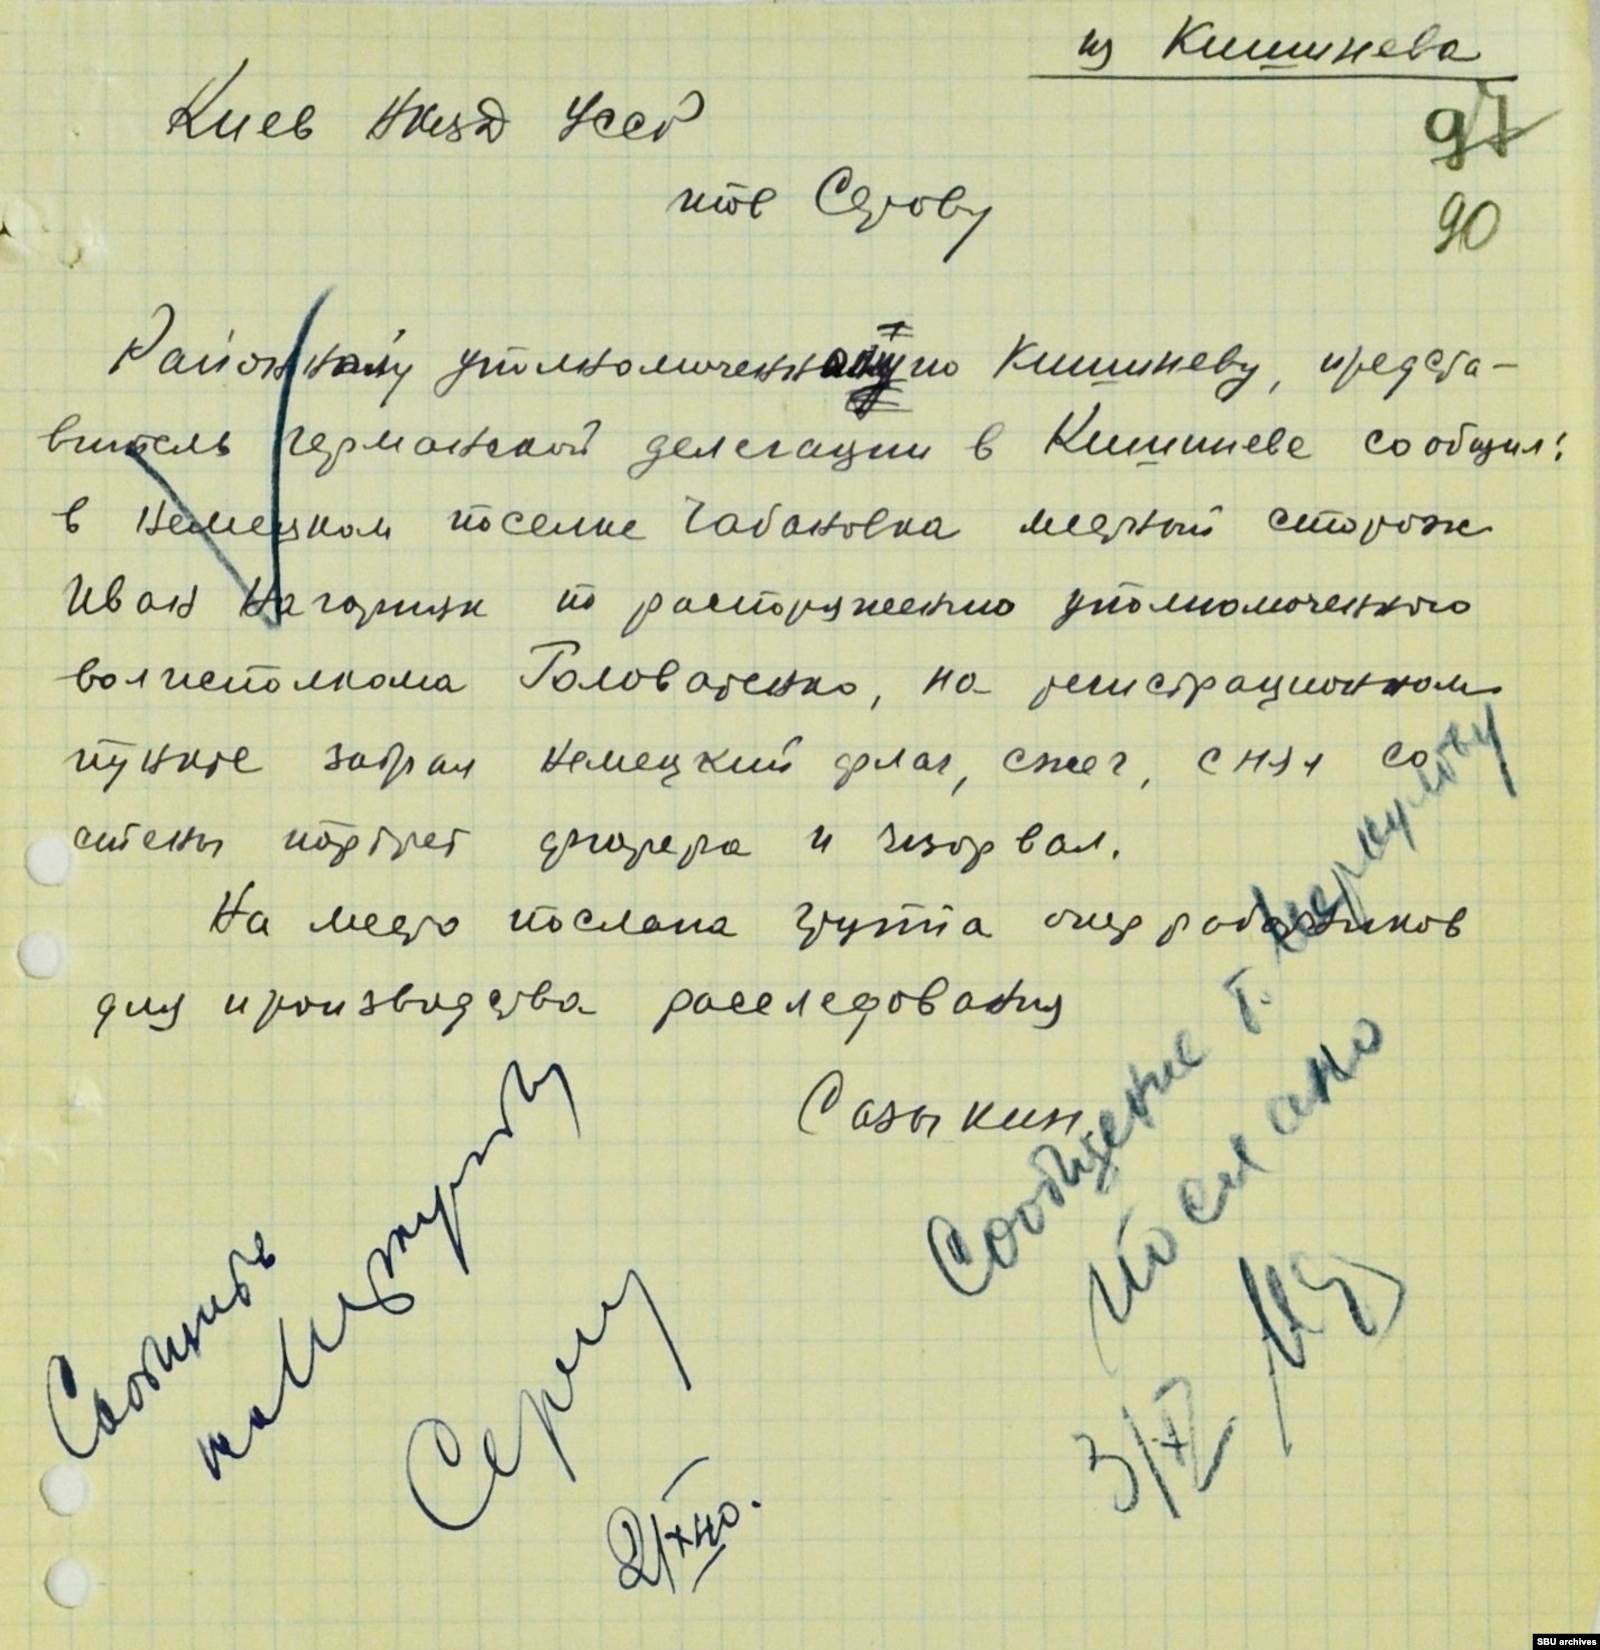 из Кишинева
97
90
Киев НКВД УССР
тов Серову
Районному уполномоченному по Кишиневу, предста-
витель германской делегации в Кишиневе сообщил:
в немецком поселке Чабановка местный сторож
Иван Нагорняк по распоряжению уполномоченного
волисполкома Головатенко, на регистрационном
пункте забрал немецкий флаг, сжег, снял со
стены портрет фюрера и изорвал.
На место послана группа опер работников
для производства расследования
Сазыкин.
Сообщить
т. Меркулову
Серов
2/X 40.
Сообщение т. Меркулову
послано
3/X
SBU archives